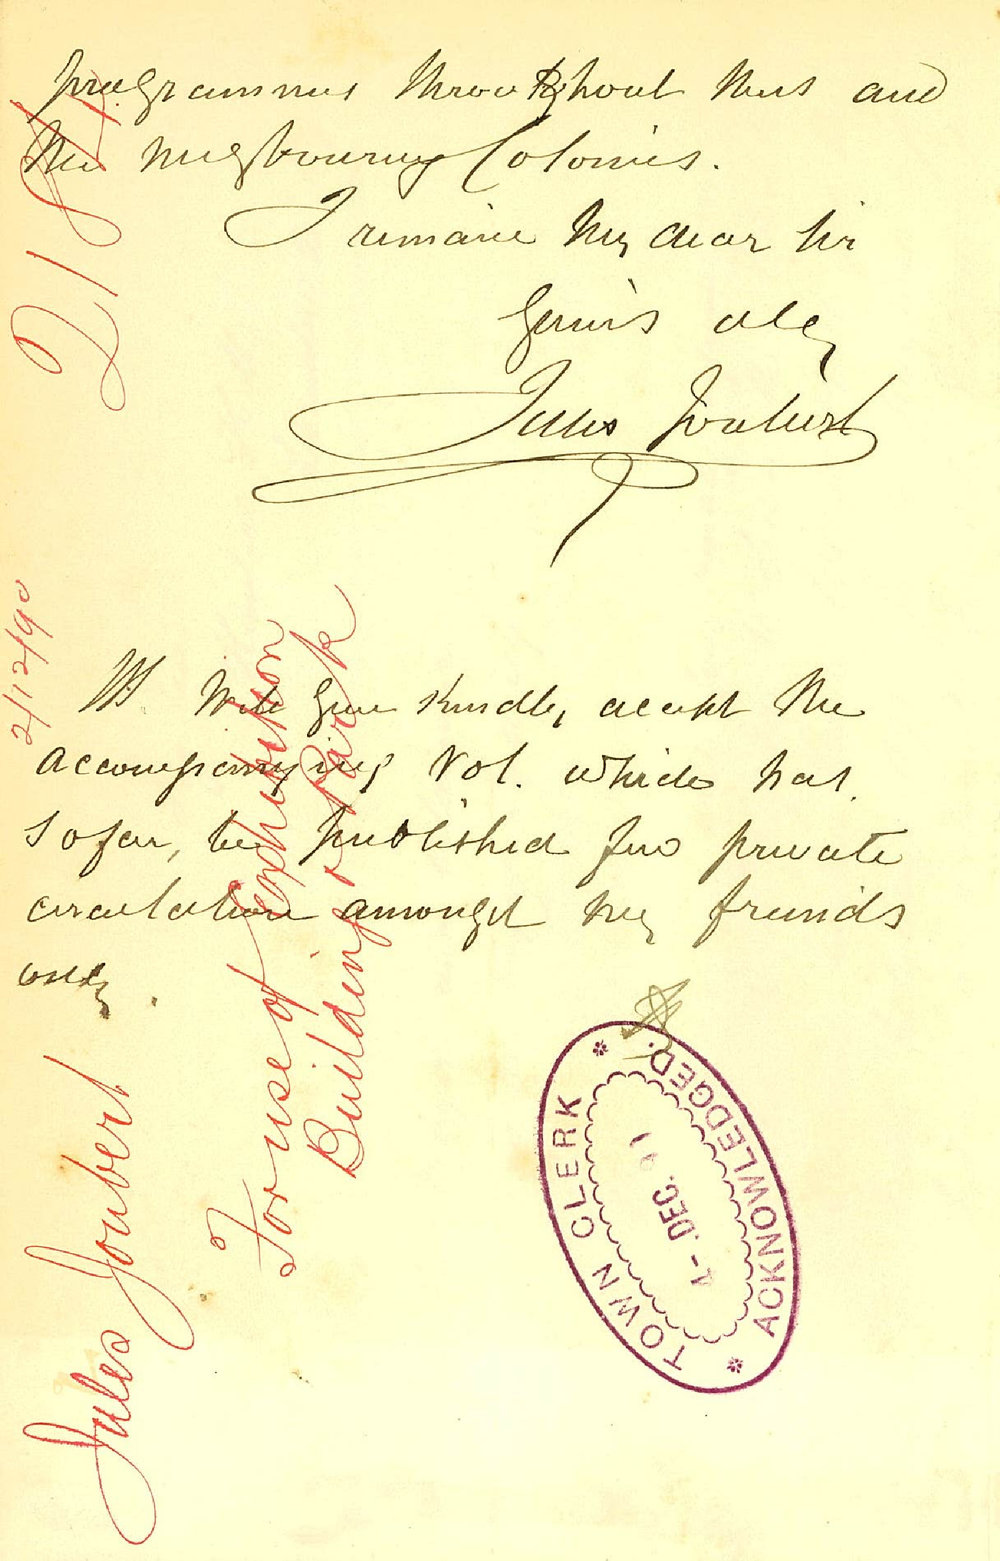 programmes throughout this and
the neighbouring Colonies.
I remain My dear Sir
Yours
Jules Joubert
Will you kindly accept the
accompanying Vol. which has
so far, be published for private
circulation amongst my friends
only.
2184
2/12/90
Jules Joubert
For use of Exhibition
Building & Park
TOWN CLERK
ACKNOWLEDGED.
4-.DEC.91